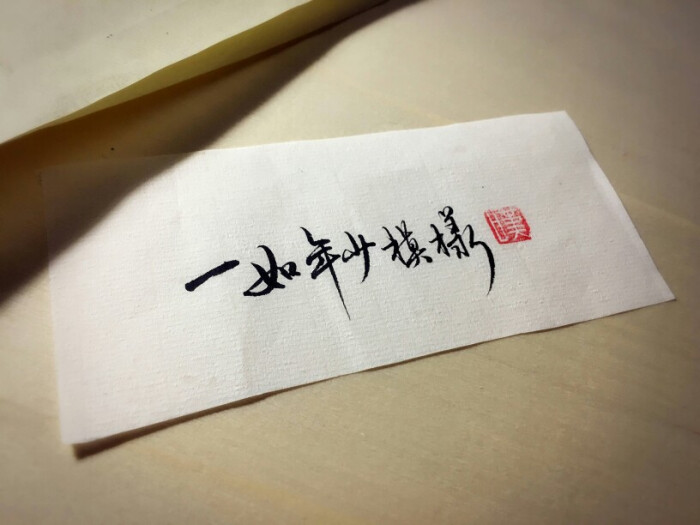 一如年少模樣